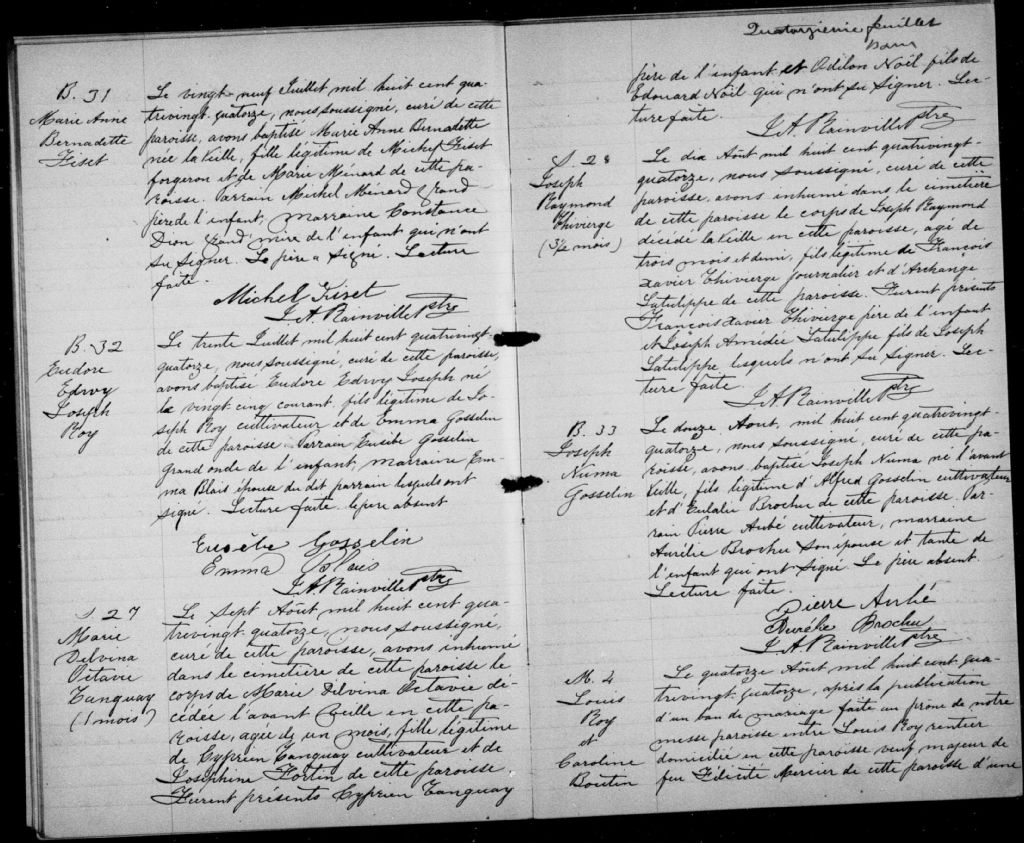 B. 31
Marie Anne
Bernadette
Fiset
Le vingt-neuf Juillet mil huit cent qua-
trevingt-quatorze, nous soussigné, curé de cette
paroisse, avons baptisé Marie Anne Bernadette
née la veille, fille légitime de Michel Fiset
forgeron et de Marie Ménard de cette pa-
roisse. Parrain Michel Ménard grand
père de l'enfant, marraine Constance
Dion grand'mère de l'enfant qui n'ont
su signer. Le père a signé. Lecture
faite.
Michel Fiset
J. A. Rainville Ptre
B. 32
Eudore
Edwy
Joseph
Roy
Le trente Juillet mil huit cent quatrevingt-
quatorze, nous soussigné, curé de cette paroisse,
avons baptisé Eudore Edwy Joseph né
le vingt-cinq courant, fils légitime de Jo-
seph Roy cultivateur et de Emma Gosselin
de cette paroisse. Parrain Eusèbe Gosselin
grand oncle de l'enfant, marraine Em-
ma Blais épouse du dit parrain lesquels ont
signé. Lecture faite. le père absent
Eusèbe Gosselin
Emma Blais
J. A. Rainville Ptre
S. 27
Marie
Delvina
Octavie
Tanguay
(1 mois)
Le sept Août mil huit cent qua-
trevingt-quatorze, nous soussigné,
curé de cette paroisse, avons inhumé
dans le cimetière de cette paroisse le
corps de Marie Delvina Octavie dé-
cédée l'avant veille en cette pa-
roisse, agée de un mois, fille légitime
de Cyprien Tanguay cultivateur et de
Joséphine Fortin de cette paroisse
Furent présents Cyprien Tanguay
Quatorzième feuillet
père de l'enfant et Odilon Noël fils de
Edouard Noël qui n'ont su signer. Lec-
ture faite.
J. A. Rainville Ptre
S. 28
Joseph
Raymond
Thivierge
(3½ mois)
Le dix Août mil huit cent quatrevingt-
quatorze, nous soussigné, curé de cette
paroisse, avons inhumé dans le cimetière
de cette paroisse le corps de Joseph Raymond
décédé la veille en cette paroisse, agé de
trois mois et demi, fils légitime de François
Xavier Thivierge journalier et d'Archange
Latulippe de cette paroisse. Furent présents
François Xavier Thivierge père de l'enfant
et Joseph Amidée Latulippe fils de Joseph
Latulippe lesquels n'ont su signer. Lec-
ture faite.
J. A. Rainville Ptre
B. 33
Joseph
Numa
Gosselin
Le douze Aout, mil huit cent quatrevingt-
quatorze, nous soussigné, curé de cette pa-
roisse, avons baptisé Joseph Numa né l'avant
veille, fils légitime d'Alfred Gosselin cultivateur
et d'Eulalie Brochu de cette paroisse. Par-
rain Pierre Aubé cultivateur, marraine
Aurélie Brochu son épouse et tante de
l'enfant qui ont signé Le père absent.
Lecture faite.
Pierre Aubé
Aurélie Brochu
J. A. Rainville Ptre
M. 4
Louis
Roy
et
Caroline
Boutin
Le quatorze Août mil huit cent qua-
trevingt-quatorze, après la publication
d'un ban de mariage faite au prône de notre
messe paroisse entre Louis Roy rentier
domicilié en cette paroisse veuf majeur de
feu Félicité Mercier de cette paroisse d'une